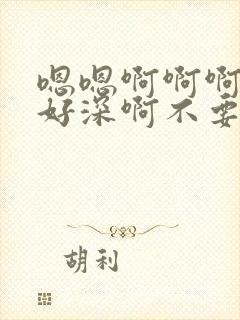 嗯嗯啊啊啊
好深啊不要
胡利